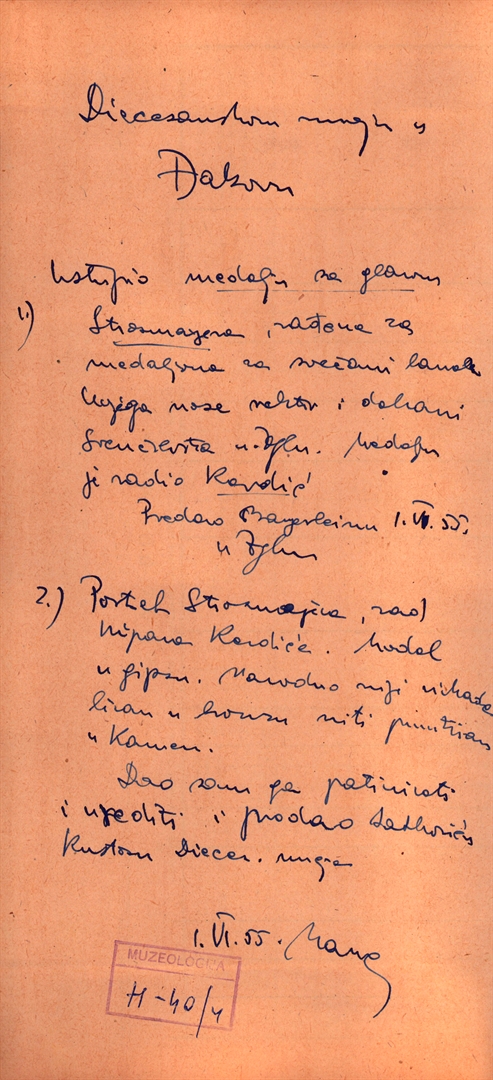 Diecezanskom muzeju u
Đakovu
Ustupio medalju sa glavom
1.) Strosmayera, rađena za
medaljona za svečani lanac
kojega nose rektor i dekani
Sveučilišta u Zgbu. Medalju
je radio Kerdić
Predao 1.VI.55.
u Zgbu
2.) Portret Strosmajera, rad
Kerdića. Model
u gipsu. Navodno nije nikada
liven u broncu niti
u Kamen.
Dao sam ga patinirati
i urediti i predao
Kustosu Diecez. muzeja
1.VI.55.
MUZEOLOGICA
H-40/4